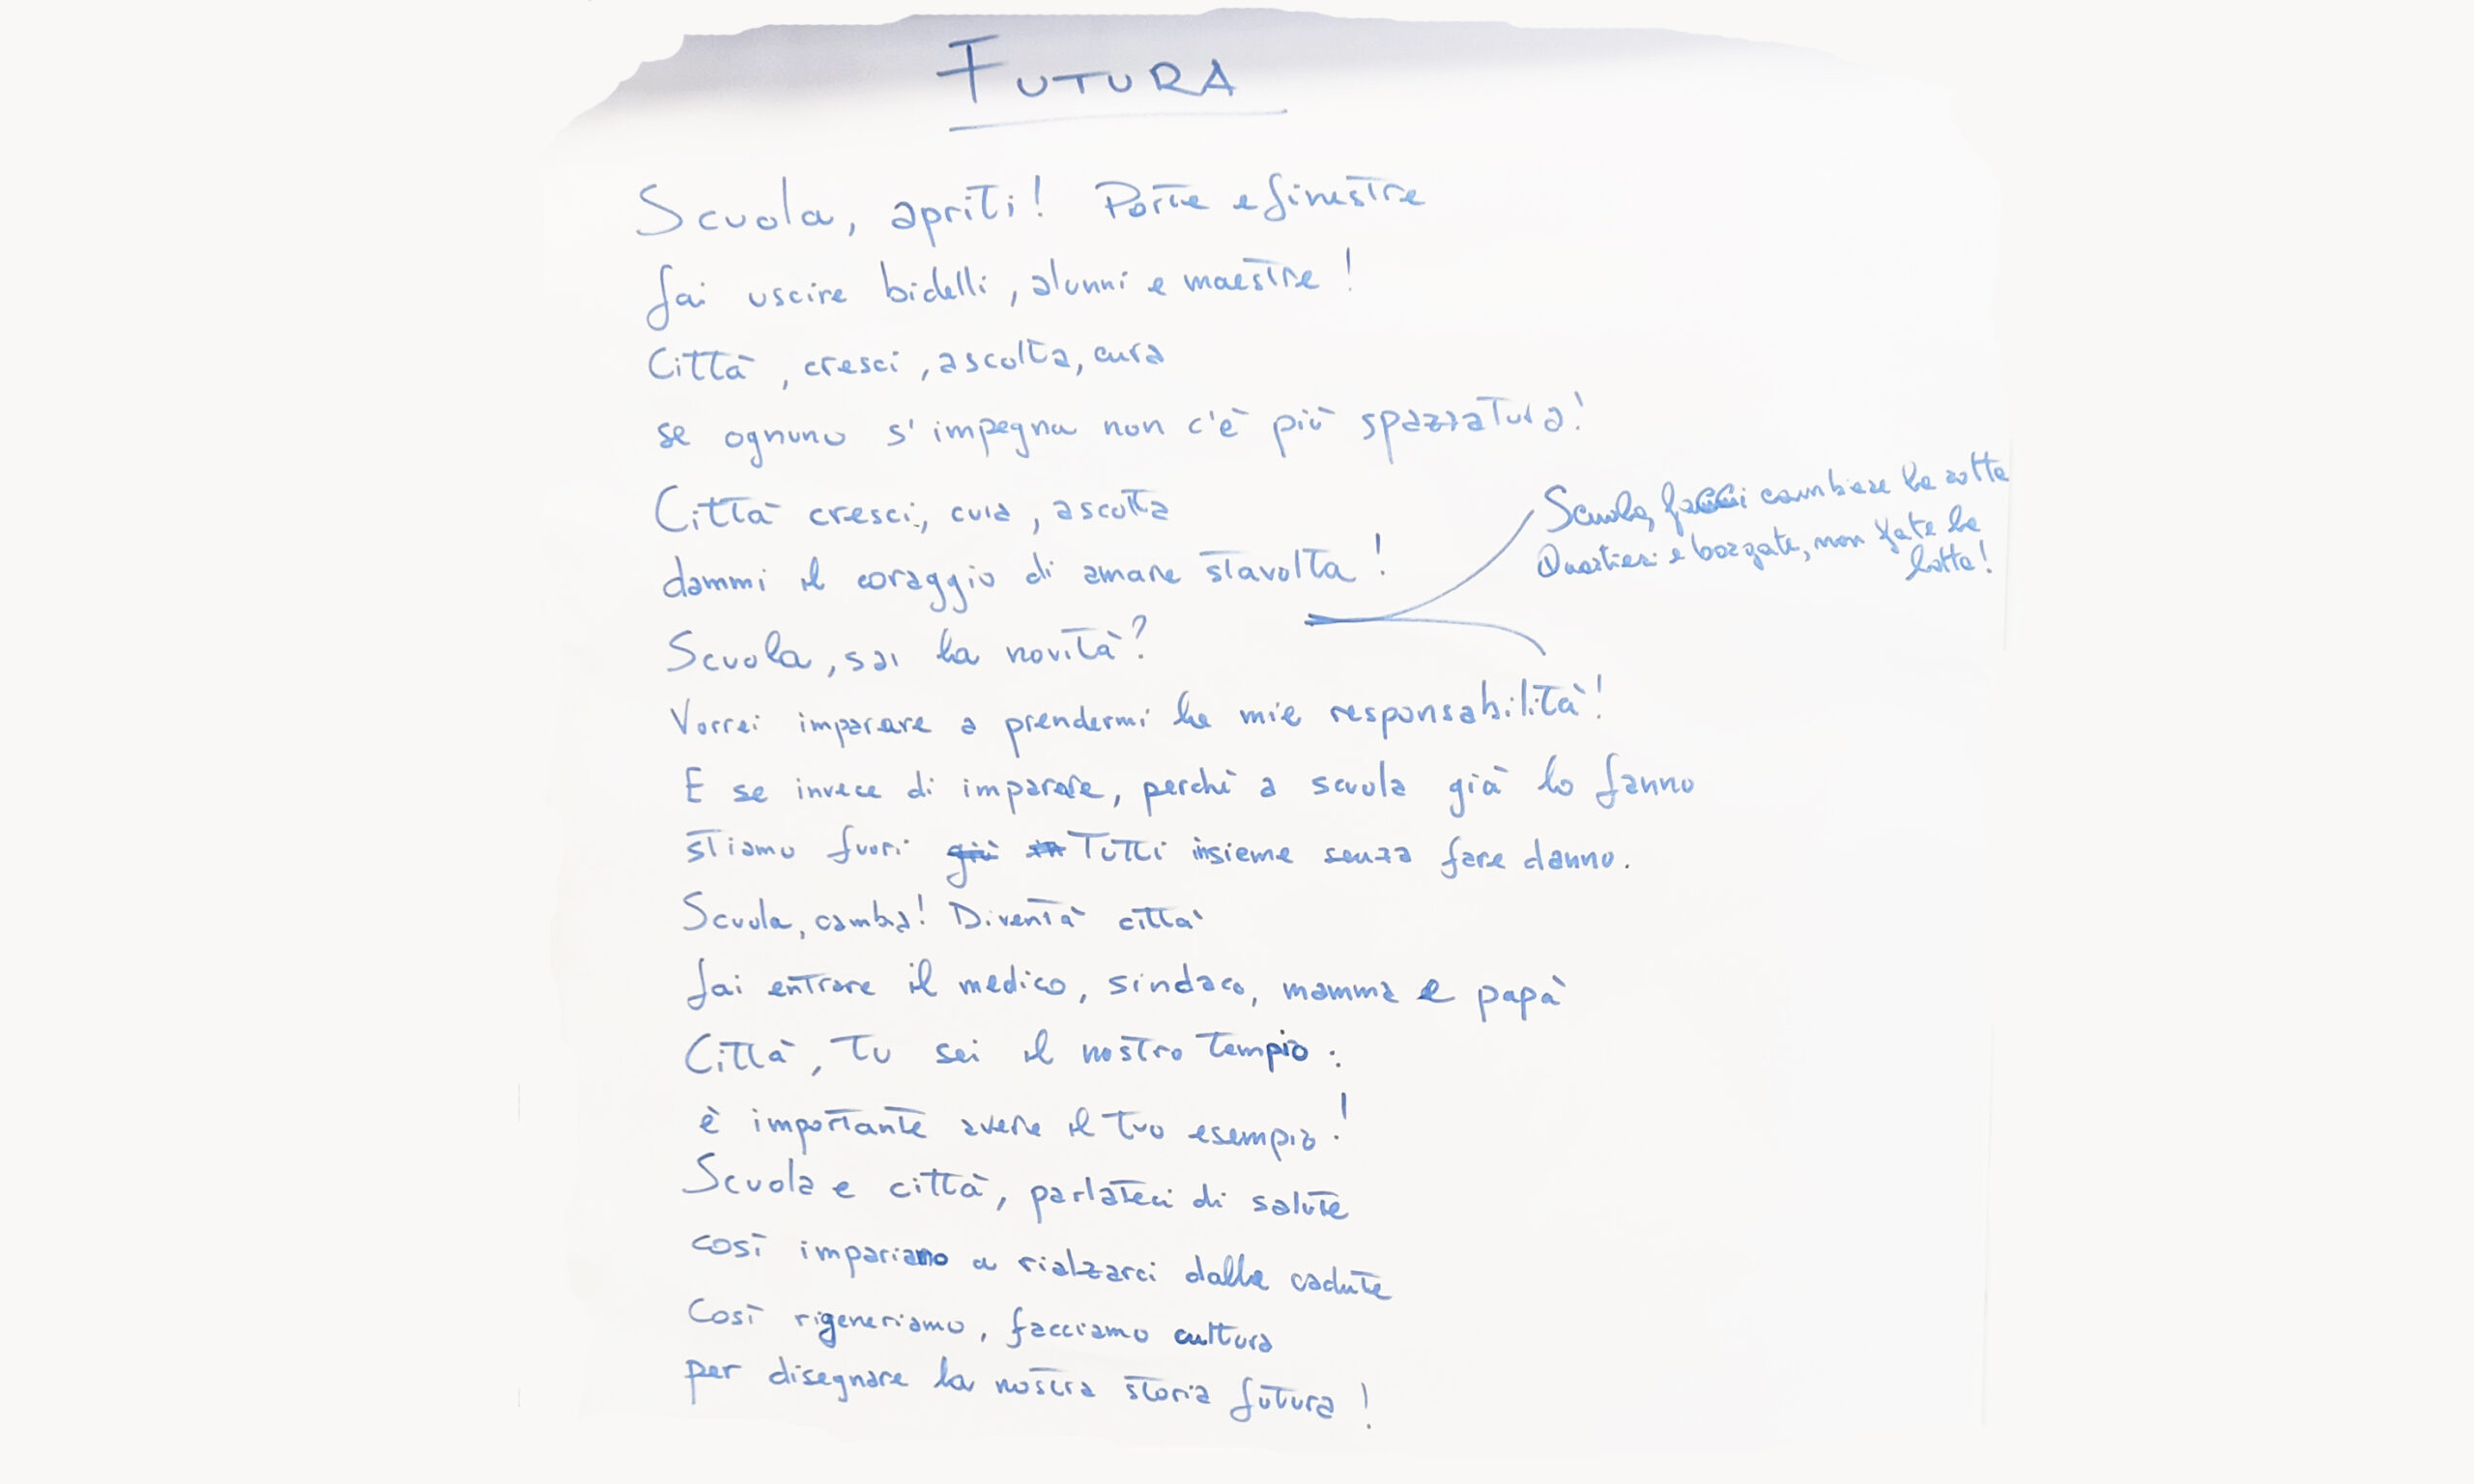 FUTURA
Scuola, apriti! Porte e finestre
fai uscire bidelli, alunni e maestre!
Città, cresci, ascolta, cura
se ognuno s'impegna non c'è più spazzatura!
Città cresci, cura, ascolta
dammi il coraggio di amare stavolta!
Scuola, facci cambiare la rotta
Quartieri e borgate, non fate la
lotta!
Scuola, sai la novità?
Vorrei imparare a prendermi le mie responsabilità!
E se invece di imparare, perchè a scuola già lo fanno
stiamo fuori tutti insieme senza fare danno.
Scuola, cambia! Diventà città
fai entrare il medico, sindaco, mamma e papà
Città, tu sei il nostro tempio:
è importante avere il tuo esempio!
Scuola e città, parlateci di salute
così impariamo a rialzarci dalle cadute
Così rigeneriamo, facciamo cultura
per disegnare la nostra storia futura!